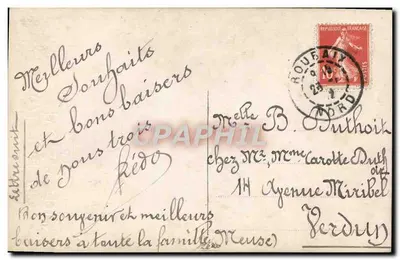 Meilleurs
Souhaits
et bons baisers
de nous trois
Lettre suit
Bon souvenir et meilleurs
baisers à toute la famille
REPUBLIQUE FRANÇAISE
ROUBAIX
NORD
Melle B. Duthoit
chez Mr, Mme Carotte Duth
oit
14 Avenue Miribel
Verdun
(Meuse)
CPAPHIL